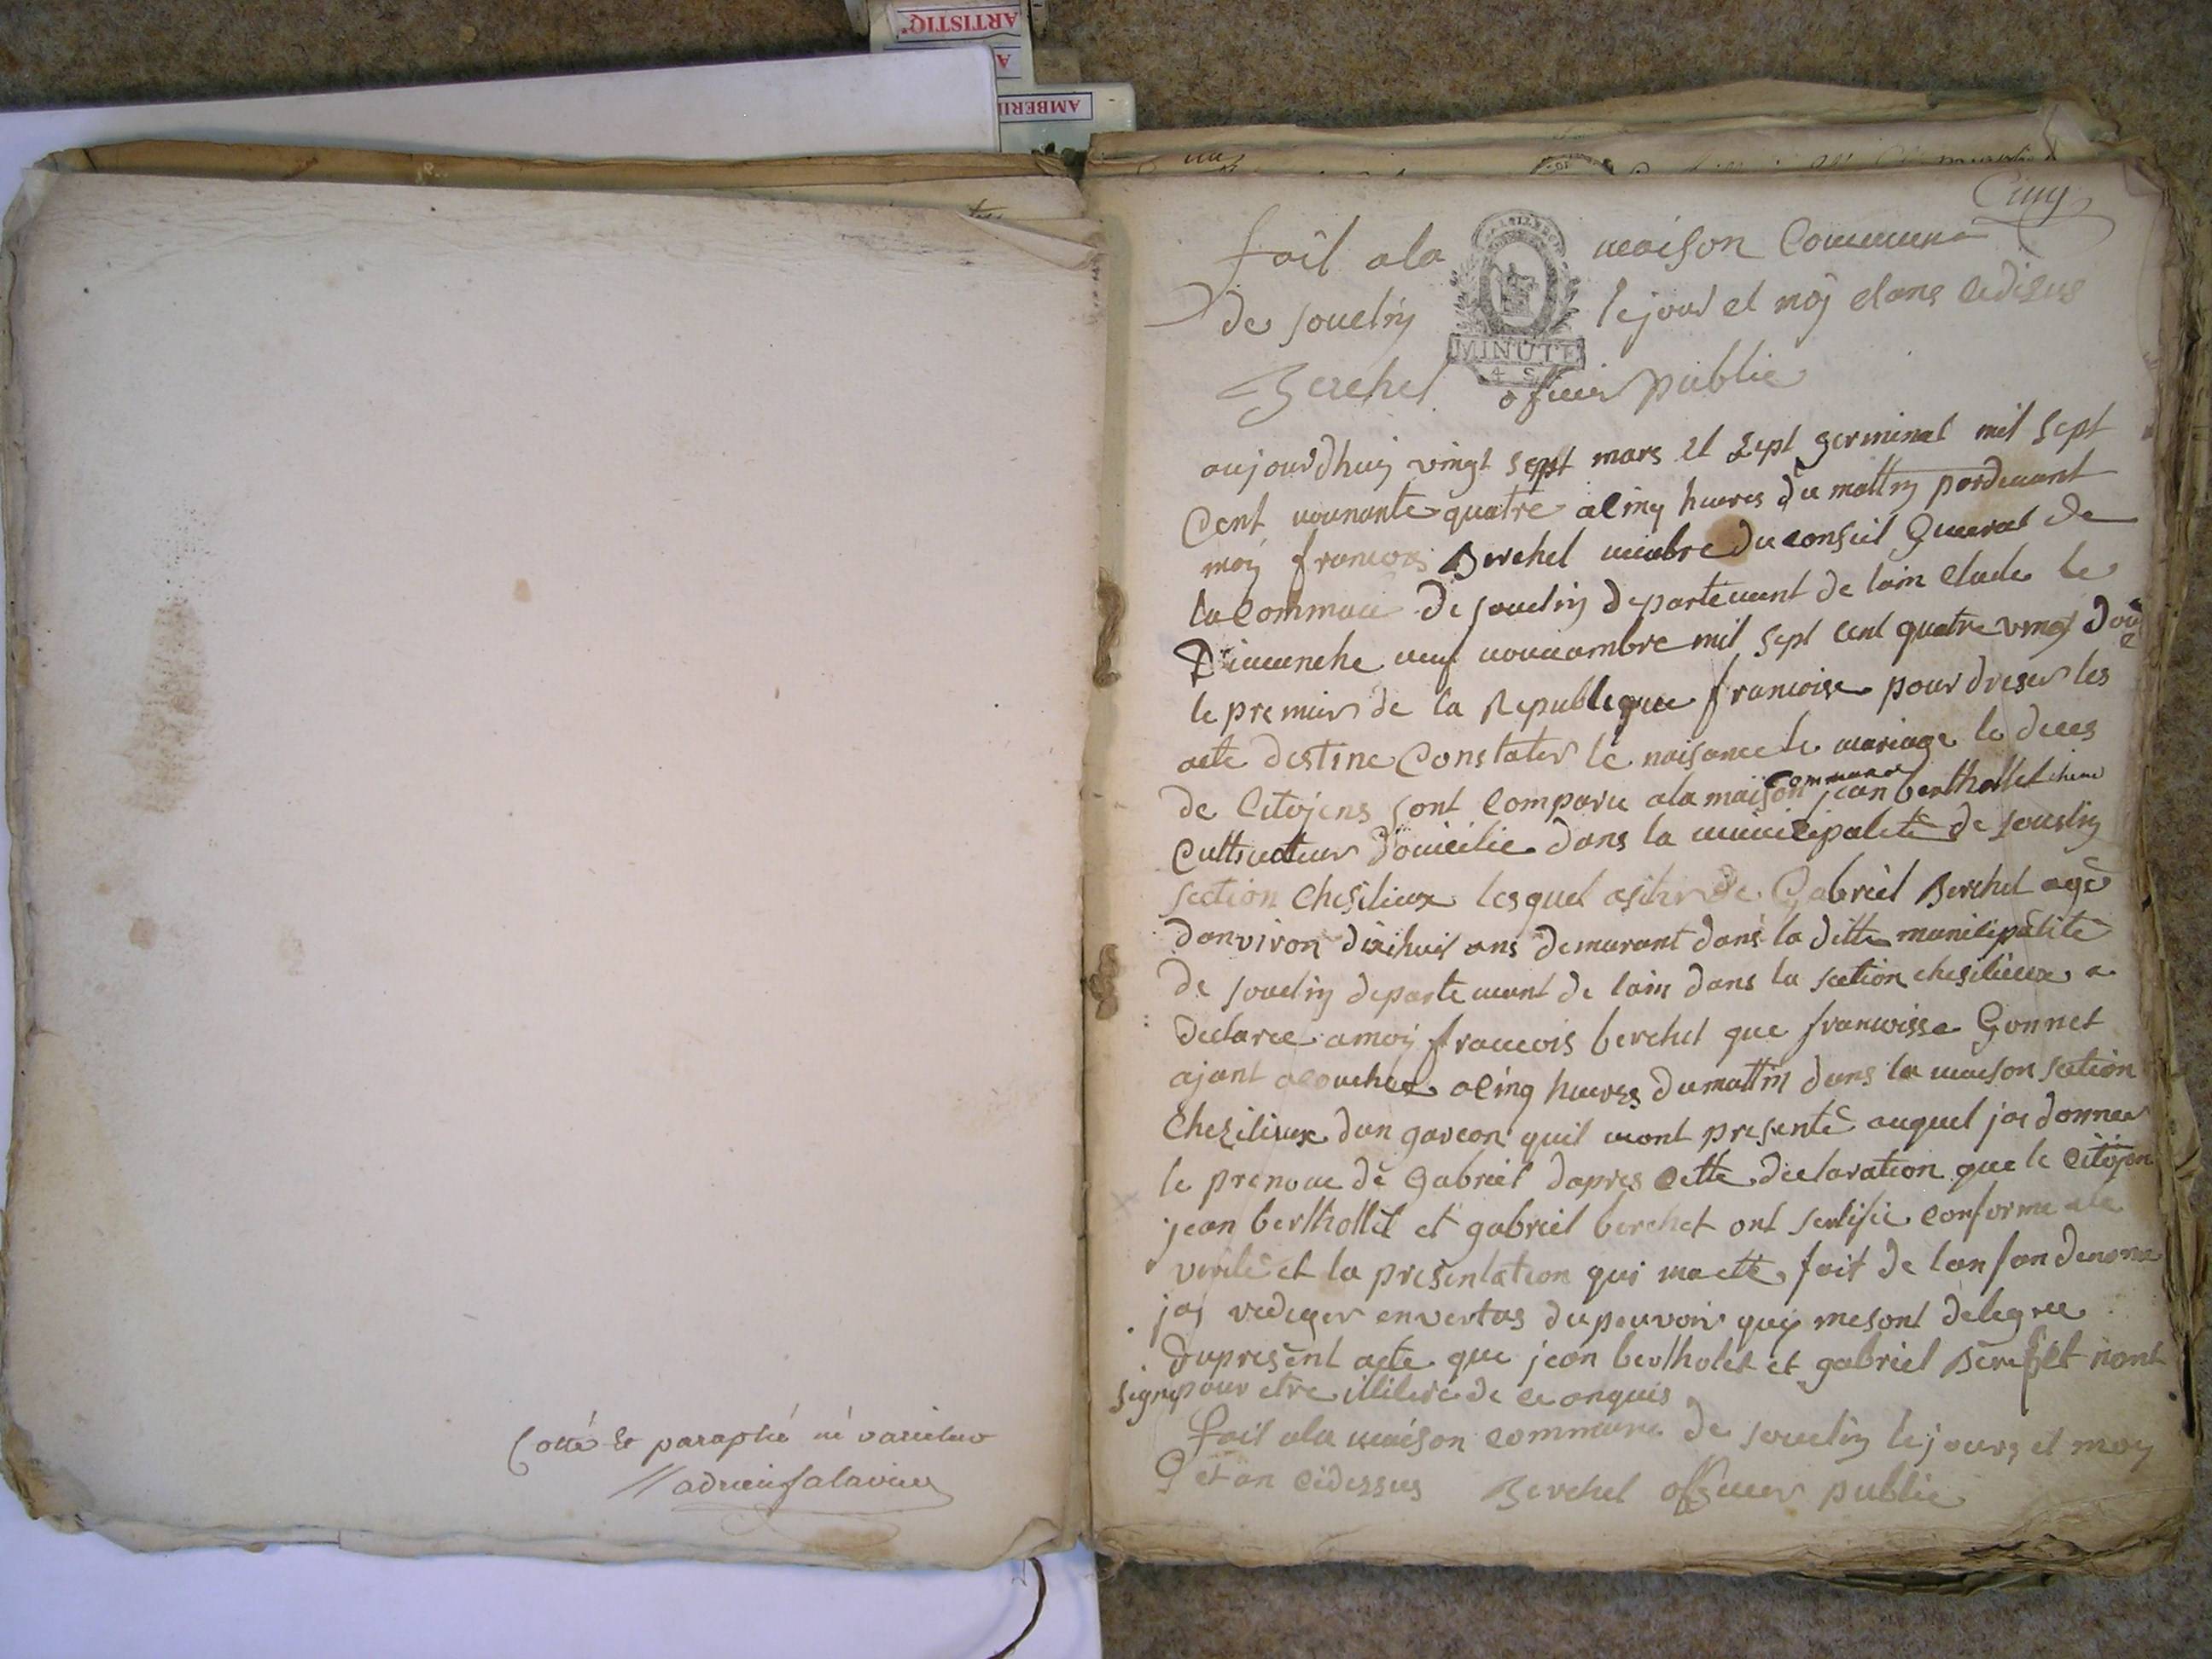 ARTISTIQ'
AMBERI
Cotté & paraphé né varietur
Cinq
fait a la maison Commune
de souclin le jour et moj et ans cedisus
Berchet oficier public
aujourdhuy vingt sept mars et sept germinal mil sept
Cent nonante quatre a cinq heures du mattin pardevant
moy francois Berchet membre du conseil General de
la commune de souclin departement de lain elude le
Dimanche neuf novambre mil sept cent quatre vingt douze
le premier de la Republique francoise pour dreser les
acte destine Constater le naisance le mariage le deces
de Citojens sont comparu a la maison commune jean berthollet
Cultivateur domicilie dans la municipalité de souclin
section Chesilieux lesquel asiter de Gabriel Berchet agé
danviron dixhuit ans demurant dans la ditte municipalité
de souclin departement de lain dans la section chesilieux a
declaree a moy francois berchet que francoisse Gonnet
ajant acouchez a cinq hueres du mattin dans la maison section
Chezilieux dun garcon quil mont presenté auquel jai donner
le prenom de Gabriel dapres Cette declaration que le Citojen
jean berthollet et gabriel berchet ont sertifie conforme a la
verité et la presentation qui ma eté fait de lanfan denome
jai rediger en vertus du peuvoir quy me sont delegree
du present acte que jean bertholet et gabriel Berchet nont
signe pour etre illitere de ce anquis
fait a la maison commune de souclin le jours et moy
et an cidessus Berchet officier public
MINUTE
4 S